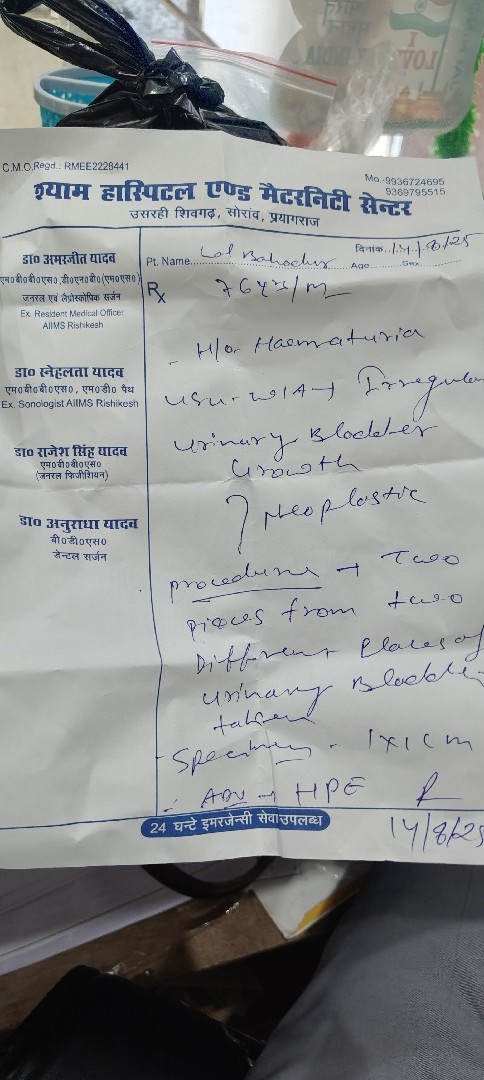 I
LOVE
C.M.O.Regd.: RMEE2228441
Mo.-9936724695
9369795515
श्याम हास्पिटल एण्ड मैटरनिटी सेन्टर
उसरही शिवगढ़, सोरांव, प्रयागराज
डा० अमरजीत यादव
एम०बी०बी०एस०,डी०एन०बी०(एम०एस०)
जनरल एवं लैप्रोस्कोपिक सर्जन
Ex. Resident Medical Officer
AIIMS Rishikesh
डा० स्नेहलता यादव
एम०बी०बी०एस०, एम०डी० पैथ
Ex. Sonologist AIIMS Rishikesh
डा० राजेश सिंह यादव
एम०बी०बी०एस०
(जनरल फिजीशियन)
डा० अनुराधा यादव
बी०डी०एस०
डेन्टल सर्जन
दिनांक 14/8/25
Pt. Name Lal Bahadur Age Sex
Rx 76 yrs/m
- H/o Haematuria
USG-W/A → Irregular
urinary Bladder
Growth
? Neoplastic
procedure → Two
pieces from two
Different Places of
urinary Bladder
taken
- Specimen - 1x1 cm
- Adv → HPE
14/8/25
24 घन्टे इमरजेन्सी सेवा उपलब्ध